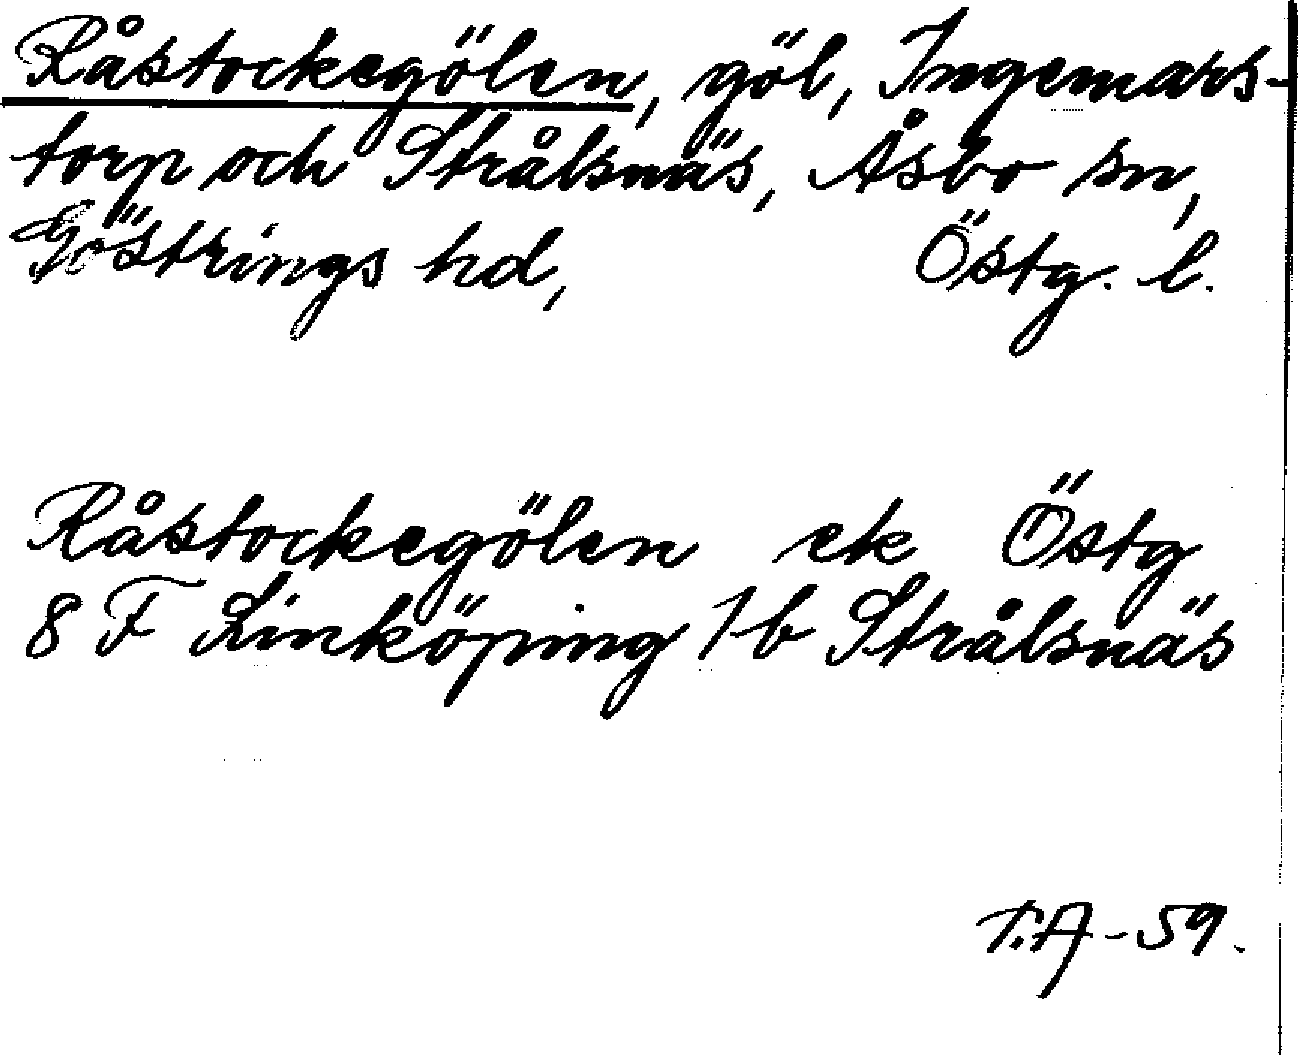 Råstockegölen, göl, Ingemars-
torp och Strålsnäs, Åsbo sn,
Göstrings hd, Östg. l.
Råstockegölen ek Östg
8 F Linköping 1 b Strålsnäs
T.A-59.